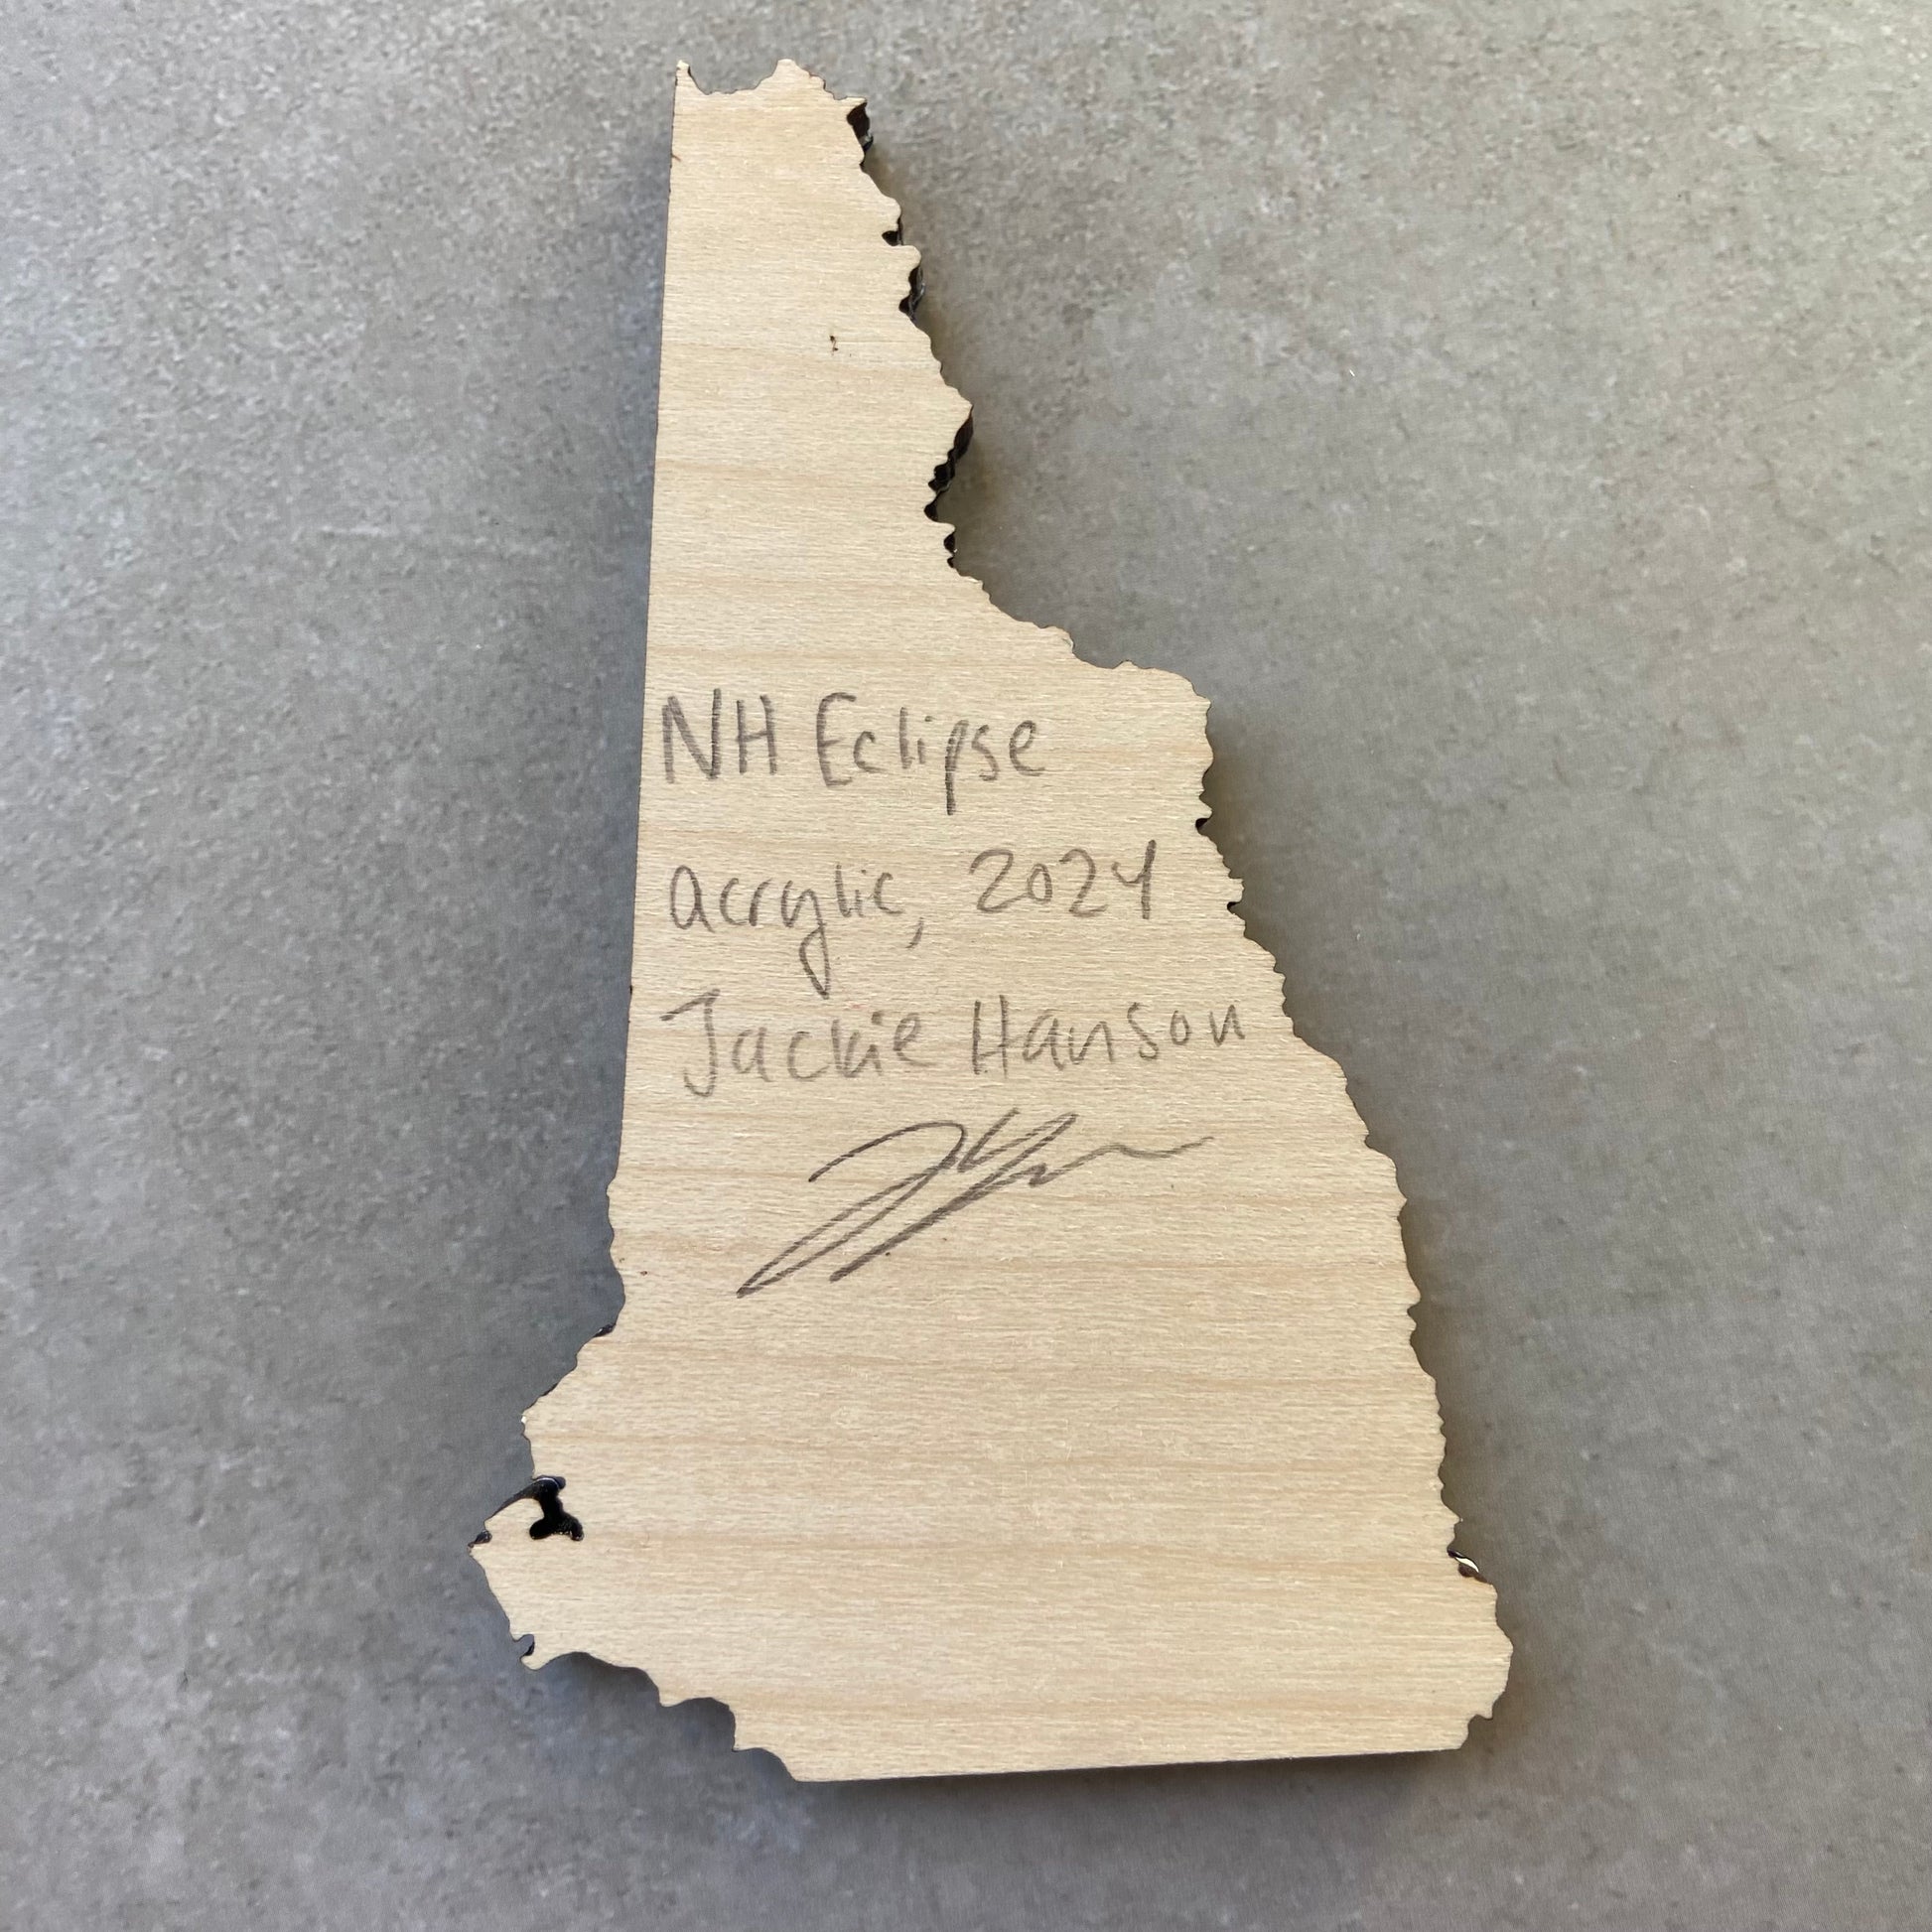 NH Eclipse
acrylic, 2024
Jackie Hanson